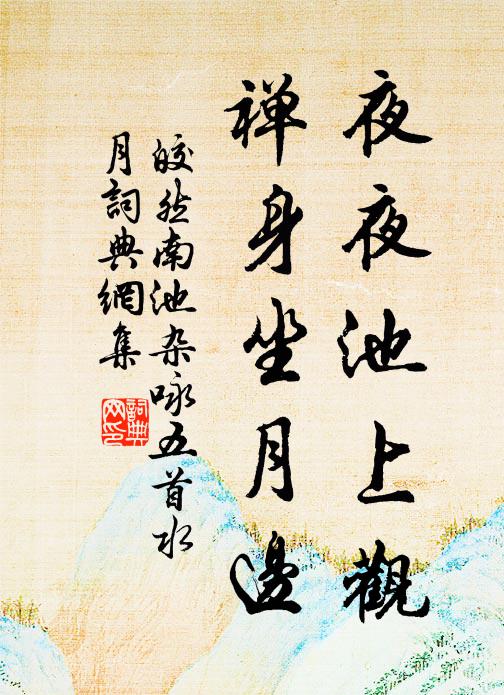 夜夜池上觀
禅身坐月邊
皎然南池杂咏五首水
月詞典網集
詞典
网印